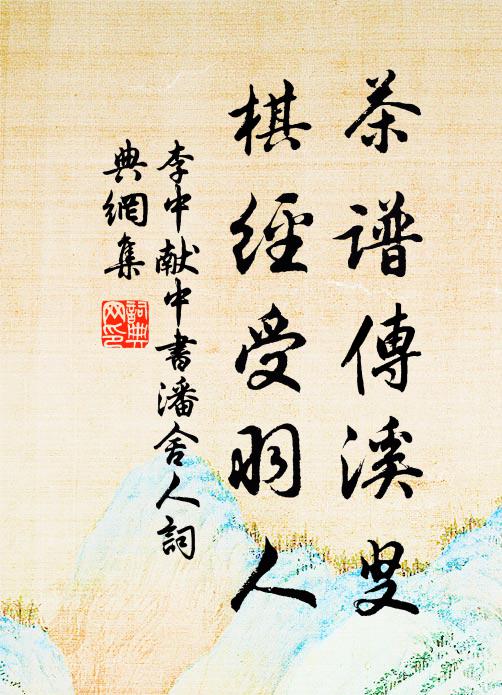 茶譜傳溪叟
棋經受羽人
李中献中書潘舍人詞
典網集
詞典網印